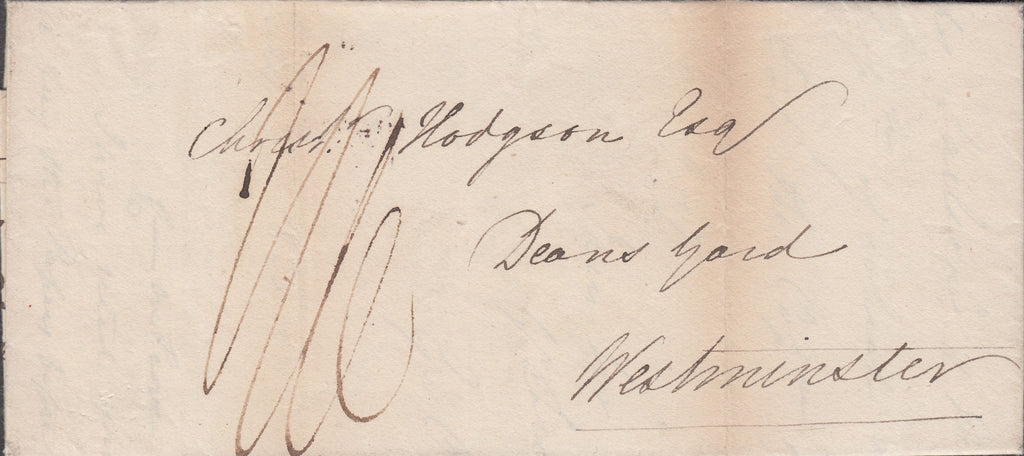 Christr. Hodgson Esq
Deans Yard
Westminster